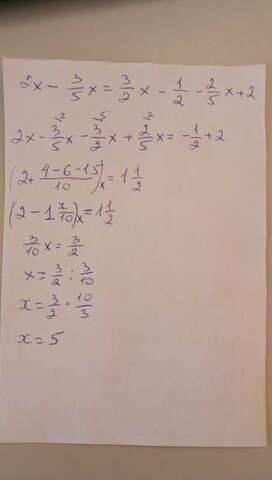 2x - 3/5 x = 3/2 x - 1/2 - 2/5 x + 2
2x - 3/5 x - 3/2 x + 2/5 x = -1/2 + 2
(2 + (4-6-15)/10)x = 1 1/2
(2 - 1 7/10)x = 1 1/2
3/10 x = 3/2
x = 3/2 : 3/10
x = 3/2 · 10/3
x = 5